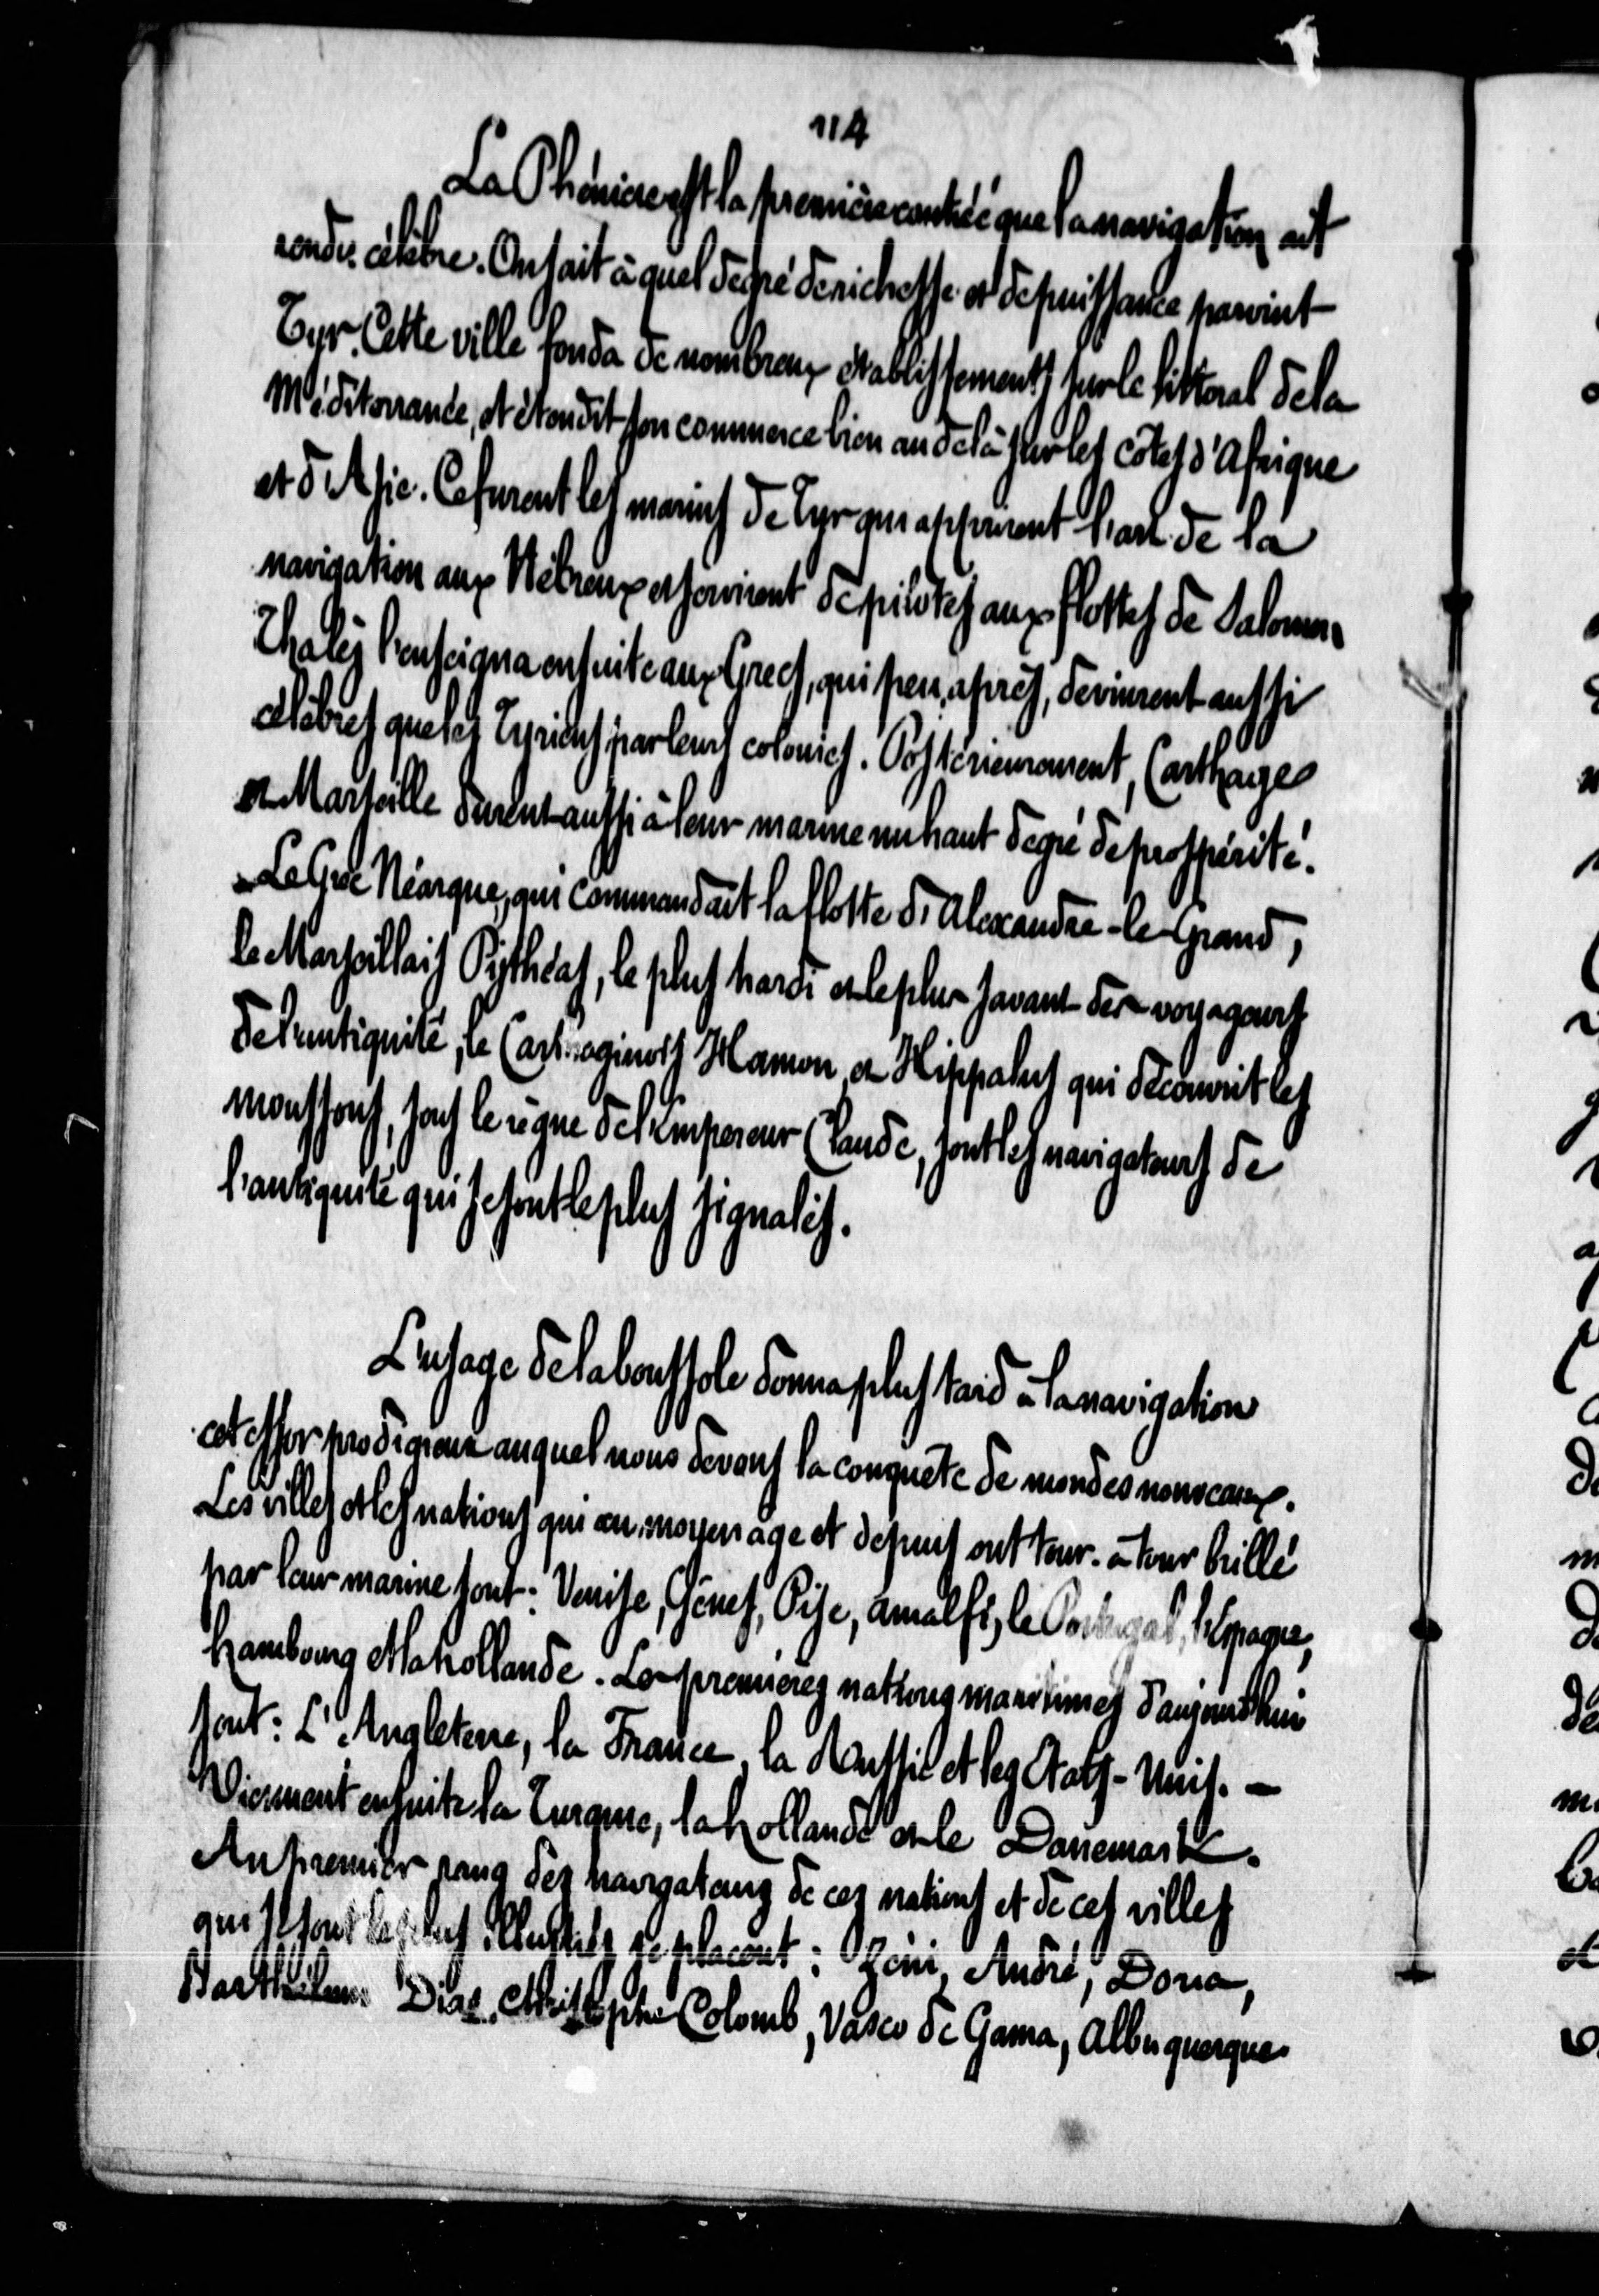 114
La Phénicie est la première contrée que la navigation ait
rendu célèbre. On sait à quel degré de richesse et de puissance parvint
Tyr. Cette ville fonda de nombreux établissements sur le littoral de la
Méditerranée, et étendit son commerce bien au delà sur les côtes d'Afrique
et d'Asie. Ce furent les marins de Tyr qui apprirent l'art de la
navigation aux Hébreux et servirent de pilotes aux flottes de Salomon.
Thalès l'enseigna ensuite aux Grecs, qui peu, après, devinrent aussi
célèbres que les Tyriens par leurs colonies. Postérieurement, Carthage
et Marseille durent aussi à leur marine un haut degré de prospérité.
Le Grec Néarque, qui commandait la flotte d'Alexandre-le-Grand,
le Marseillais Pythéas, le plus hardi et le plus savant des voyageurs
de l'antiquité, le Carthaginois Hamon, et Hippalus qui découvrit les
moussons, sous le règne de l'Empereur Claude, sont les navigateurs de
l'antiquité qui se sont le plus signalés.
L'usage de la boussole donna plus tard à la navigation
cet essor prodigieux auquel nous devons la conquête de mondes nouveaux.
Les villes et les nations qui au moyen âge et depuis ont tour-à-tour brillé
par leur marine sont: Venise, Gênes, Pise, Amalfi, le Portugal, l'Espagne,
hambourg et la hollande. Les premières nations maritimes d'aujourd'hui
sont: L'Angleterre, la France, la Russie et les Etats-Unis. —
Viennent ensuite la Turquie, la hollande et le Danemark.
Au premier rang des navigateurs de ces nations et de ces villes
qui se sont le plus illustrés se placent: Zéni, André, Doria,
Barthélemi Dias, Christophe Colomb, Vasco de Gama, Albuquerque